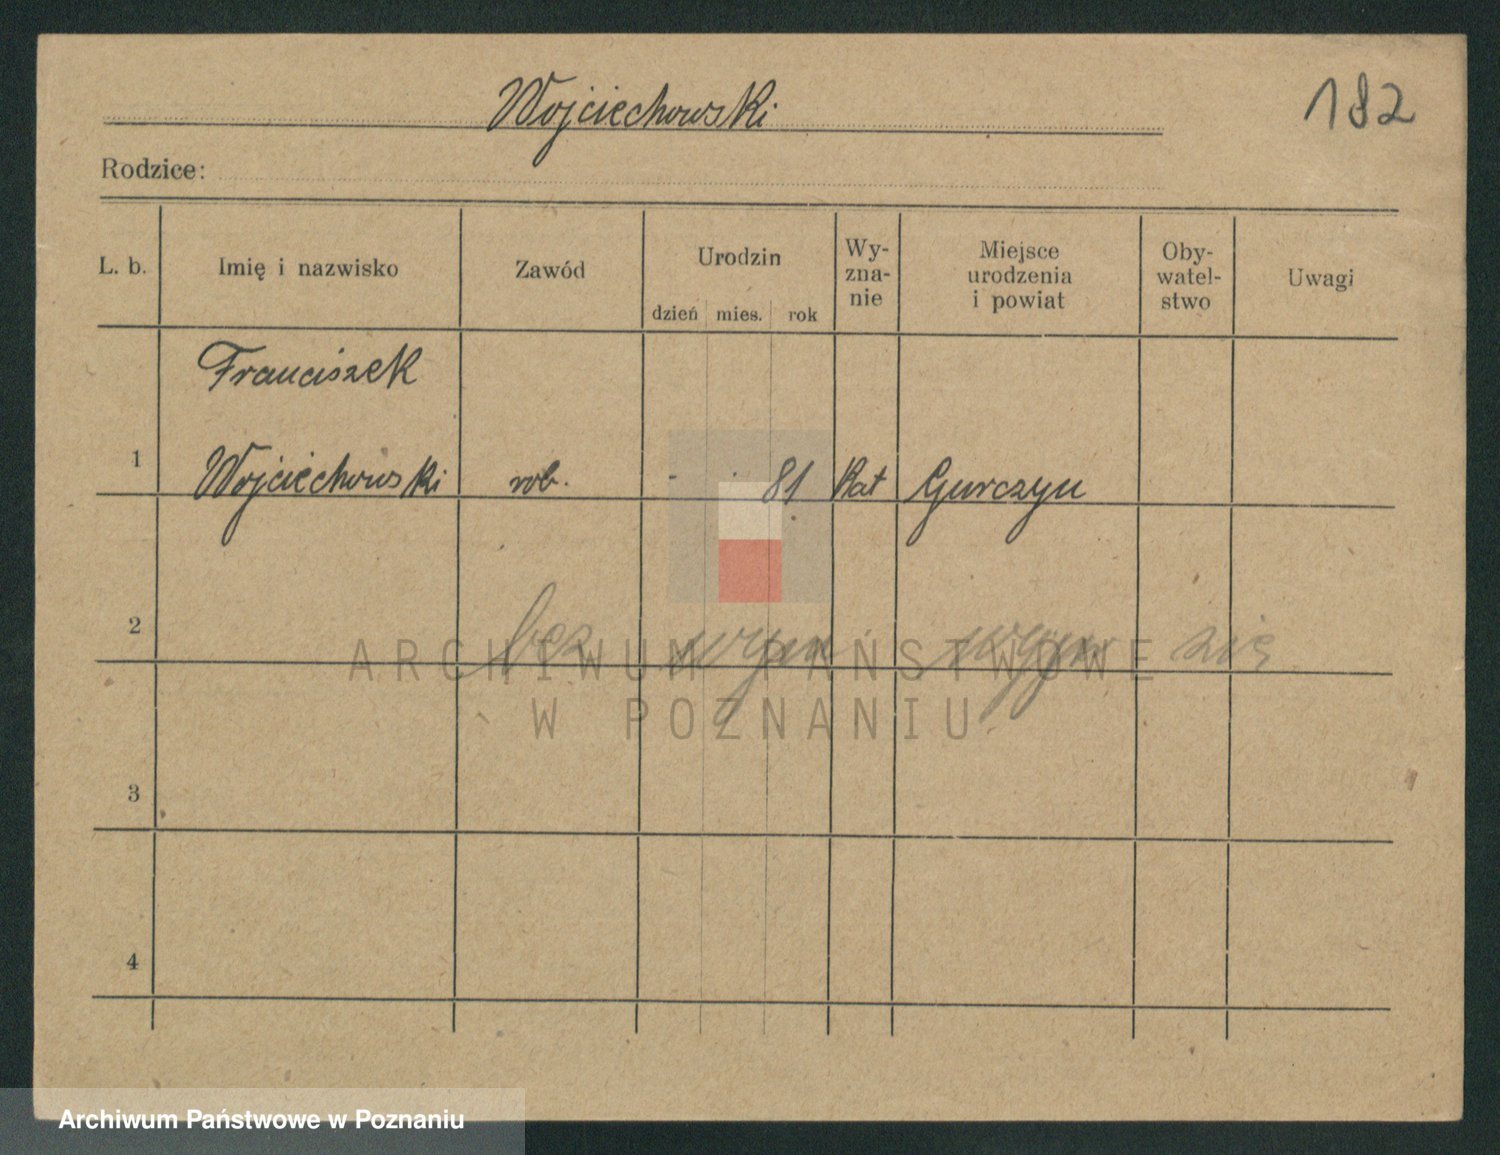 Wojciechowski
182
Rodzice:
L. b. Imię i nazwisko Zawód Urodzin dzień mies. rok Wy-zna-nie Miejsce urodzenia i powiat Oby-watel-stwo Uwagi
Franciszek
1 Wojciechowski rob. - - 81 Kat Gurczyn
2 bez się
ARCHIWUM PAŃSTWOWE
W POZNANIU
3
4
Archiwum Państwowe w Poznaniu